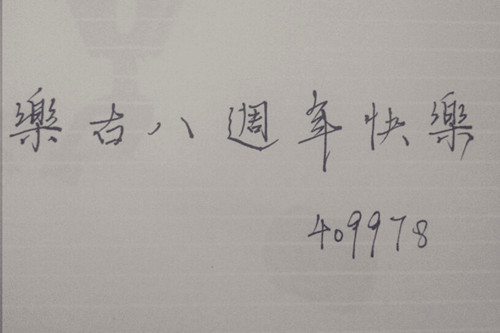 樂古八週年快樂
409978